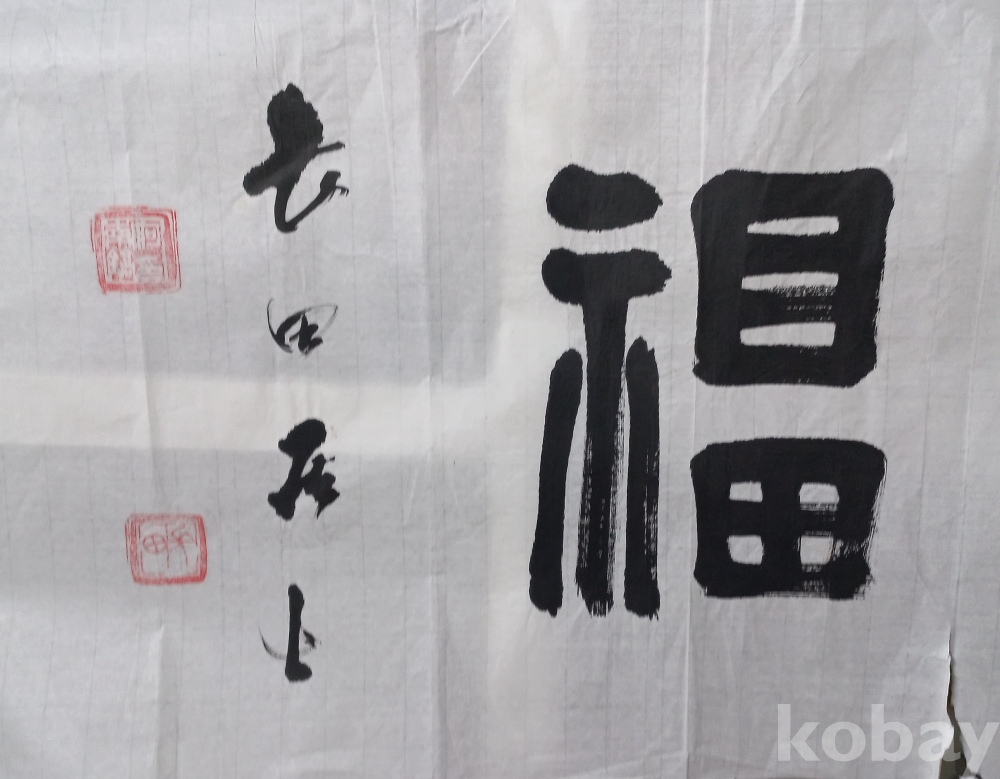 福
長田居士
kobay